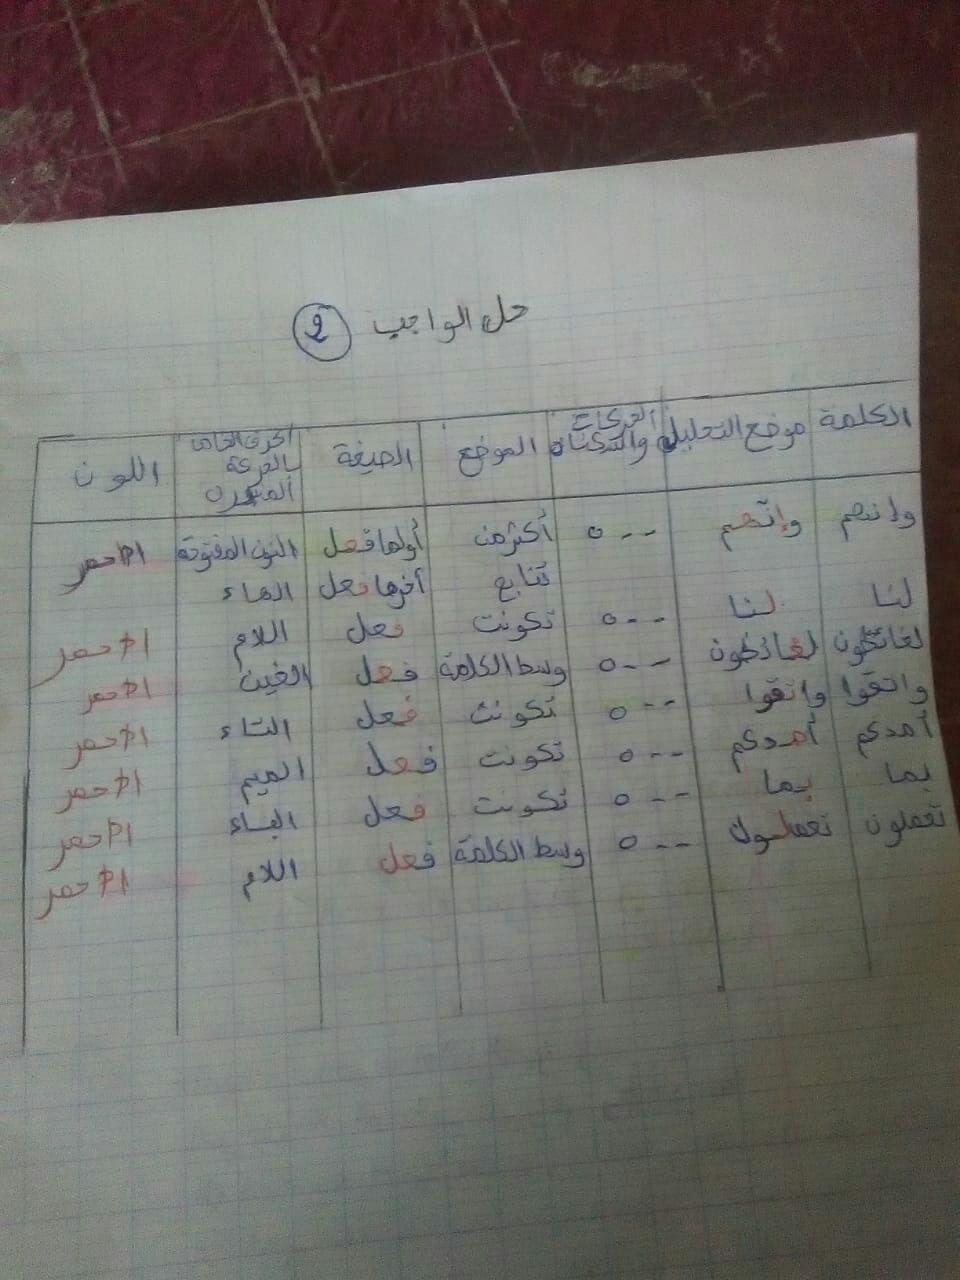 حل الواجب 2
الكلمة موضع التحليل الحركات والسكنات الموضع الصيغة الحرف الخاص بالحركة المتكررة اللون
وإنهم وإنهم --٥ أكثر من أولها فعل النون المفتوحة الأحمر
تتابع آخرها فعل الهاء
لنا لنا --٥ تكونت فعل اللام الأحمر
لغائظون لغائظون --٥ وسط الكلمة فعل الغين الأحمر
واتقوا واتقوا --٥ تكونت فعل التاء الأحمر
أمدكم أمدكم --٥ تكونت فعل الميم الأحمر
بما بما --٥ تكونت فعل الباء الأحمر
تعملون تعملون --٥ وسط الكلمة فعل اللام الأحمر